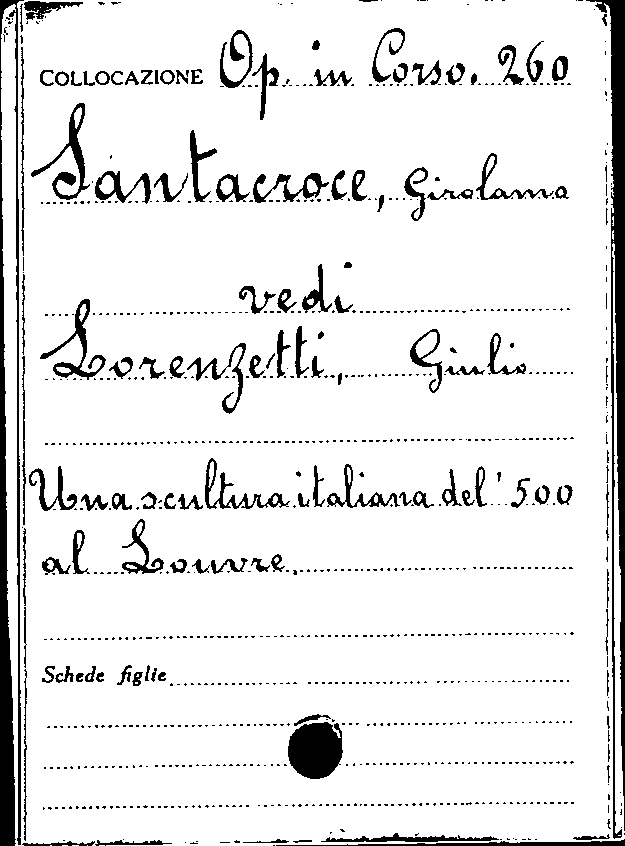 COLLOCAZIONE Op. in Corso. 260
Santacroce, Girolamo
vedi
Lorenzetti, Giulio
Una scultura italiana del '500
al Louvre.
Schede figlie